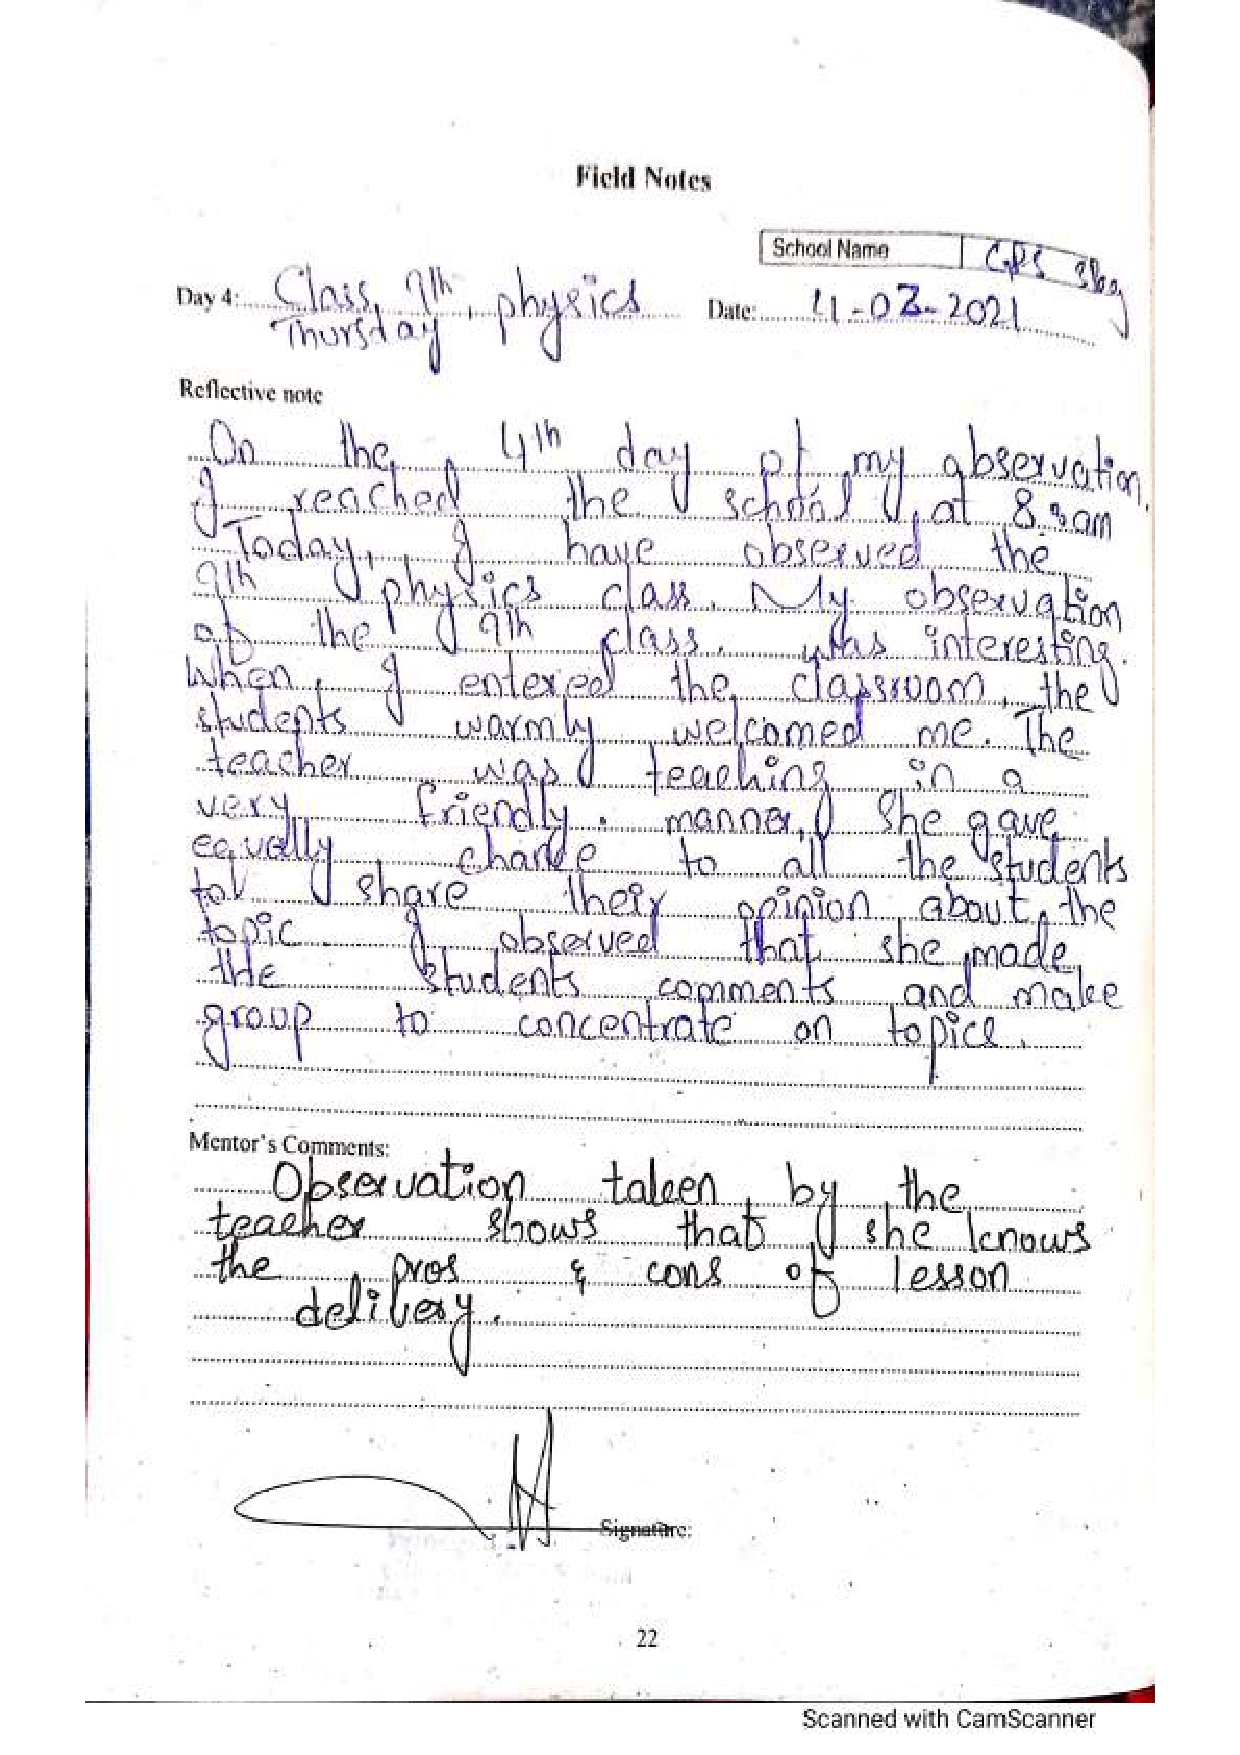 Field Notes
School Name
Day 4: Class, 9th, physics
Thursday
Date: 4-03-2021
Reflective note
On the 4th day of my observation
I reached the school, at 8.
Today, I have observed the
9th physics class. My observation
of the 9th class. was interesting.
When, I entered the classroom, the
students warmly welcomed me. The
teacher was teaching in a
very friendly. manner, She gave
equally chance to all the students
to share their opinion about the
topic. I observed that she made
the students comments and make
group to concentrate on topice.
Mentor's Comments:
Observation taken by the
teacher shows that she knows
the pros & cons of lesson
delivery.
Signature:
22
Scanned with CamScanner